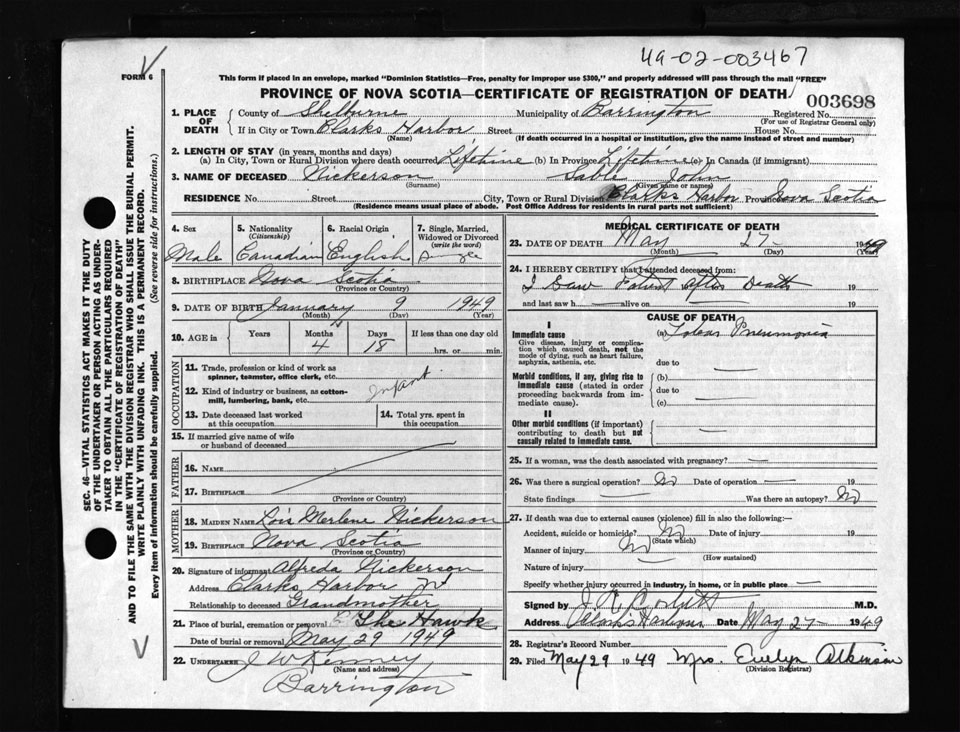 49-02-003467
FORM 6
This form if placed in an envelope, marked "Dominion Statistics—Free, penalty for improper use $300," and properly addressed will pass through the mail "FREE"
PROVINCE OF NOVA SCOTIA—CERTIFICATE OF REGISTRATION OF DEATH
003698
1. PLACE OF DEATH County of Shelburne Municipality of Barrington Registered No.
(For use of Registrar General only)
If in City or Town Clarks Harbor Street House No.
(Name) (If death occurred in a hospital or institution, give the name instead of street and number)
2. LENGTH OF STAY (in years, months and days)
(a) In City, Town or Rural Division where death occurred Lifetime (b) In Province Lifetime (c) In Canada (if immigrant)
3. NAME OF DECEASED Nickerson John
(Surname) (Given name or names)
RESIDENCE No. Street City, Town or Rural Division Clarks Harbor Province Nova Scotia
(Residence means usual place of abode. Post Office Address for residents in rural parts not sufficient)
4. Sex 5. Nationality 6. Racial Origin 7. Single, Married, Widowed or Divorced
(Citizenship) (write the word)
Male Canadian English Single
8. BIRTHPLACE Nova Scotia
(Province or Country)
9. DATE OF BIRTH January 9 1949
(Month) (Day) (Year)
10. AGE in Years Months Days If less than one day old
4 18 hrs. or min.
OCCUPATION
11. Trade, profession or kind of work as spinner, teamster, office clerk, etc.
12. Kind of industry or business, as cotton-mill, lumbering, bank, etc. Infant
13. Date deceased last worked at this occupation
14. Total yrs. spent in this occupation
15. If married give name of wife or husband of deceased
FATHER
16. NAME
17. BIRTHPLACE
(Province or Country)
MOTHER
18. MAIDEN NAME Lois Merlene Nickerson
19. BIRTHPLACE Nova Scotia
(Province or Country)
20. Signature of informant Alfreda Nickerson
Address Clarks Harbor NS
Relationship to deceased Grandmother
21. Place of burial, cremation or removal The Hawk
Date of burial or removal May 29 1949
22. UNDERTAKER J W Kenney
(Name and address)
Barrington
MEDICAL CERTIFICATE OF DEATH
23. DATE OF DEATH May 27 1949
(Month) (Day) (Year)
24. I HEREBY CERTIFY that I attended deceased from:
I Saw Patient after Death 19
and last saw h alive on 19
CAUSE OF DEATH
I
Immediate cause (a) Lobar Pneumonia
Give disease, injury or complication which caused death, not the mode of dying, such as heart failure, asphyxia, asthenia, etc.
due to
Morbid conditions, if any, giving rise to immediate cause (stated in order proceeding backwards from immediate cause).
(b)
due to
(c)
II
Other morbid conditions (if important) contributing to death but not causally related to immediate cause.
25. If a woman, was the death associated with pregnancy? —
26. Was there a surgical operation? No Date of operation — 19
State findings — Was there an autopsy? No
27. If death was due to external causes (violence) fill in also the following:—
Accident, suicide or homicide? No Date of injury 19
(State which)
Manner of injury No
(How sustained)
Nature of injury
Specify whether injury occurred in industry, in home, or in public place —
Signed by M.D.
Address Clark's Harbour Date May 27 1949
28. Registrar's Record Number
29. Filed May 29 1949 Mrs. Evelyn Atkinson
(Division Registrar)
SEC. 46—VITAL STATISTICS ACT MAKES IT THE DUTY
OF THE UNDERTAKER OR PERSON ACTING AS UNDER-
TAKER TO OBTAIN ALL THE PARTICULARS REQUIRED
IN THE "CERTIFICATE OF REGISTRATION OF DEATH"
AND TO FILE THE SAME WITH THE DIVISION REGISTRAR WHO SHALL ISSUE THE BURIAL PERMIT.
WRITE PLAINLY WITH UNFADING INK. THIS IS A PERMANENT RECORD.
Every item of information should be carefully supplied. (See reverse side for instructions.)